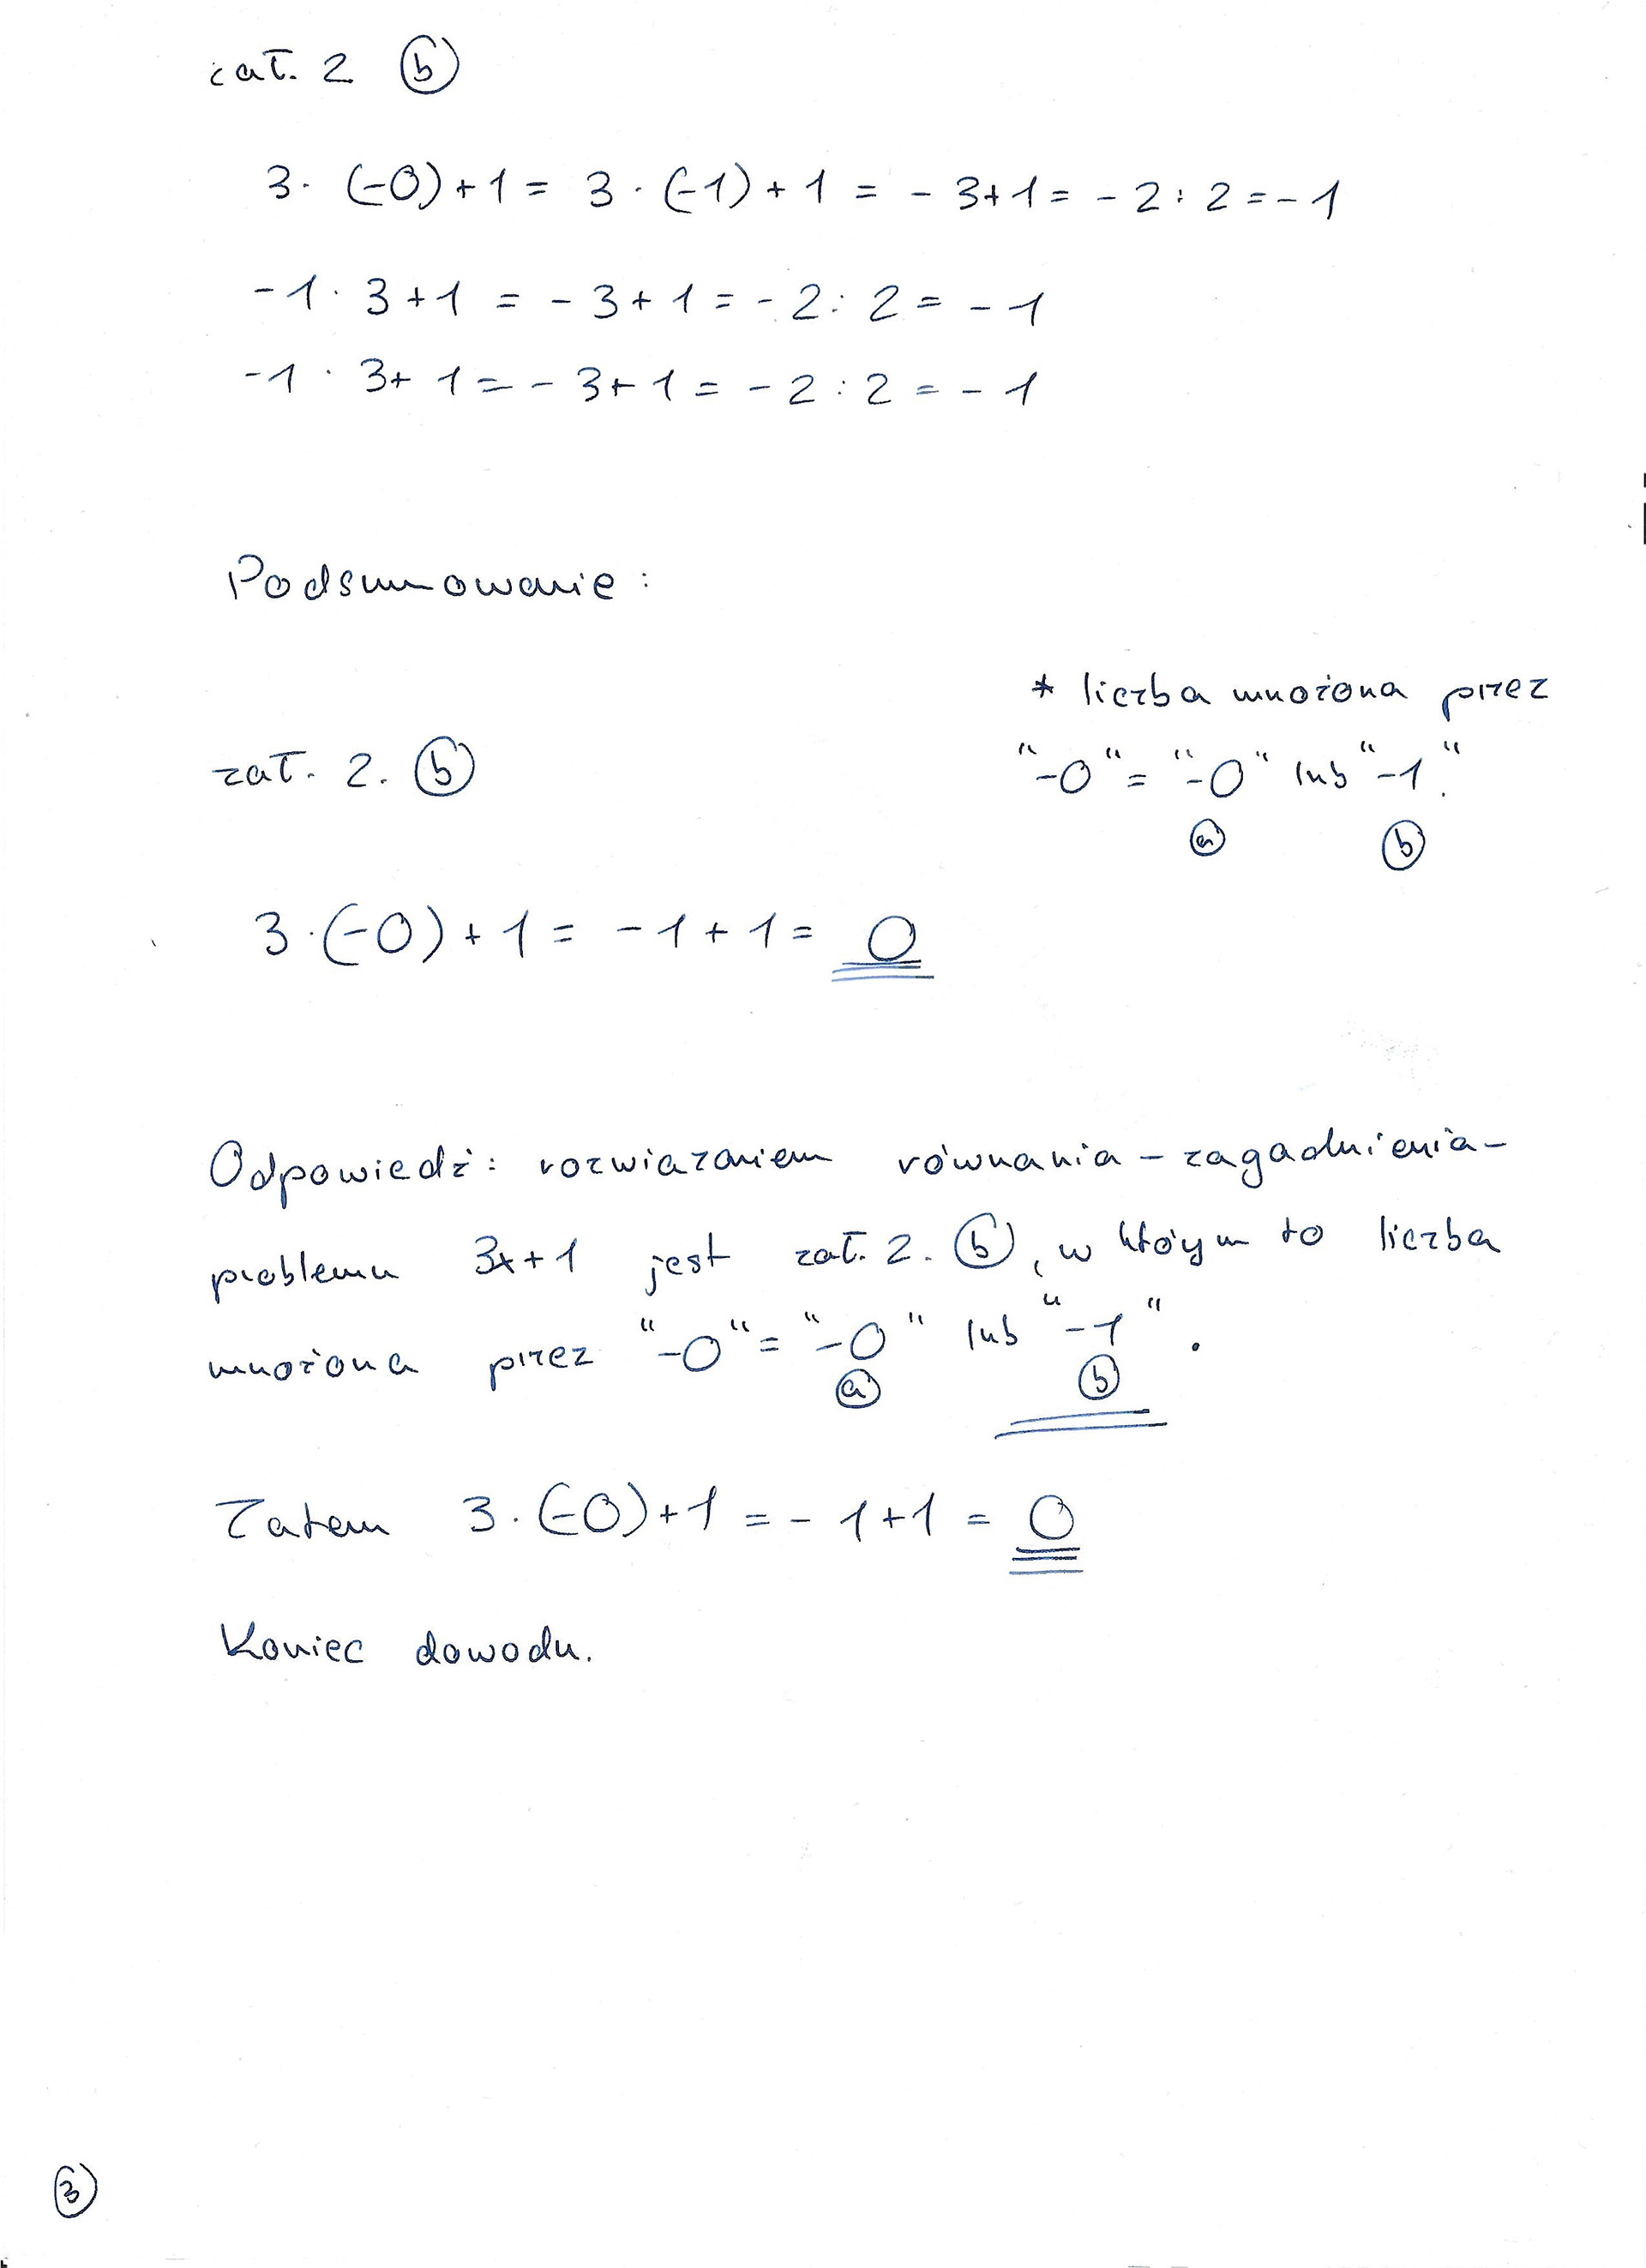 zał. 2 (b)
3 · (-0) + 1 = 3 · (-1) + 1 = - 3 + 1 = - 2 : 2 = - 1
-1 · 3 + 1 = - 3 + 1 = - 2 : 2 = - 1
-1 · 3 + 1 = - 3 + 1 = - 2 : 2 = - 1
Podsumowanie :
* liczba mnożona przez
"-0" = "-0" lub "-1".
(a) (b)
zał. 2. (b)
3 · (-0) + 1 = - 1 + 1 = 0
Odpowiedź : rozwiazaniem równania - zagadnienia -
problemu 3x + 1 jest zał. 2. (b), w którym to liczba
mnożona przez "-0" = "-0" lub "-1".
(a) (b)
Zatem 3 · (-0) + 1 = - 1 + 1 = 0
Koniec dowodu.
(3)